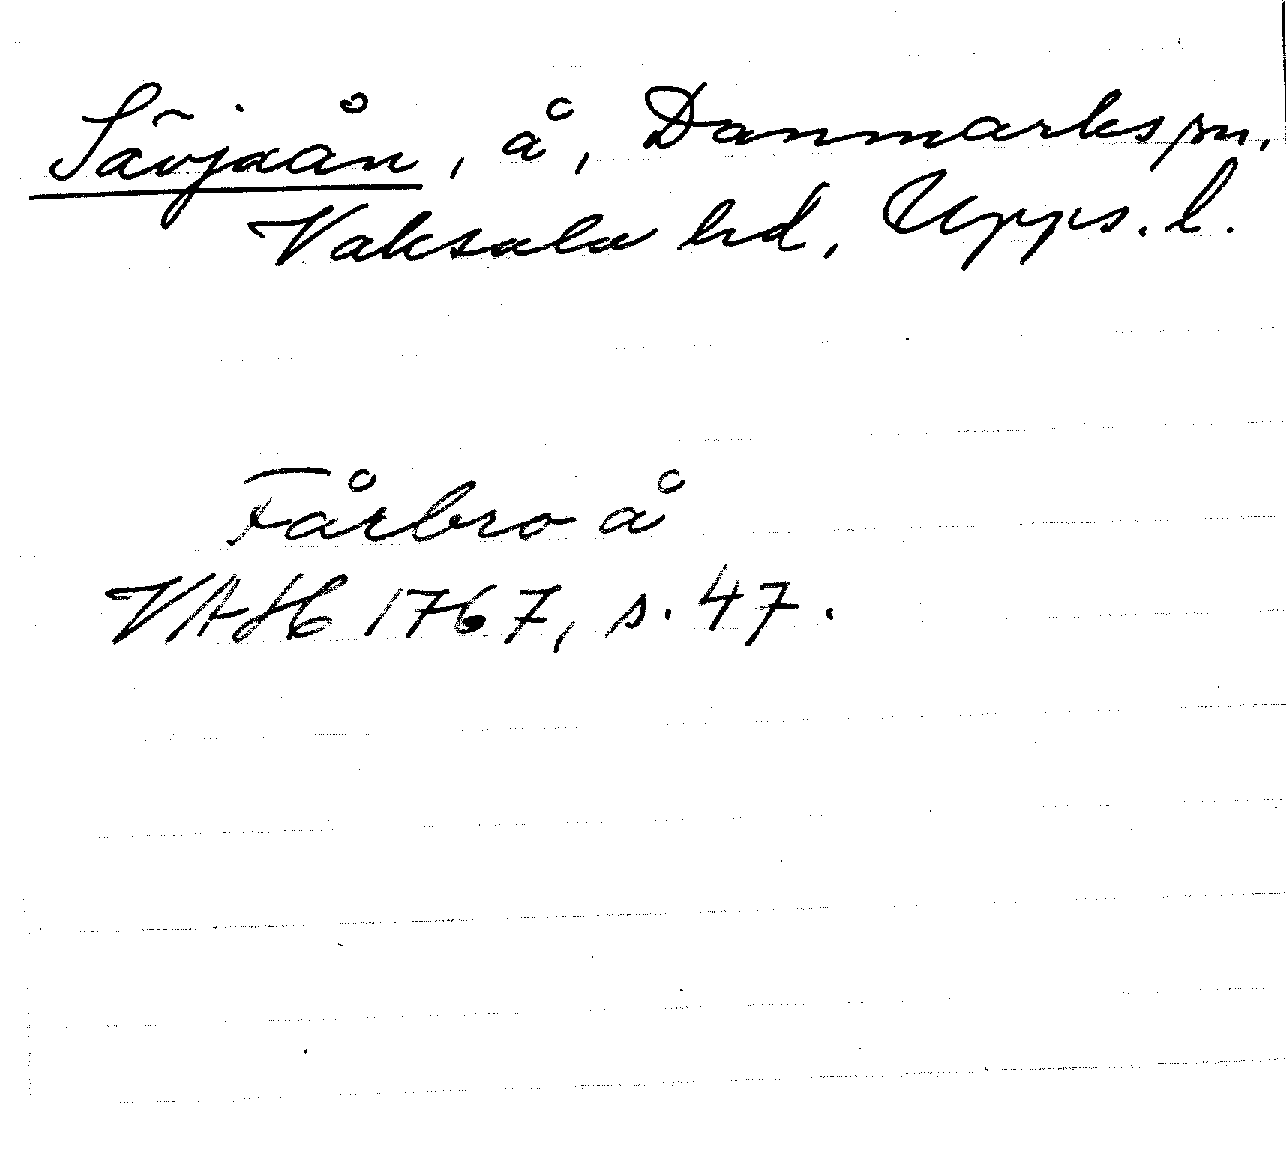 Sävjaån, å, Danmarks sn.
Vaksala hd, Upps. l.
Fårbro å
VAH 1767, s. 47.